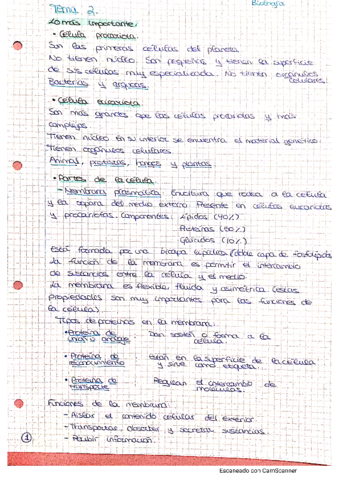 Biología
Tema 2.
Lo más importante:
• Célula procariota:
Son las primeras células del planeta
No tienen núcleo. Son pequeñas y tienen la superficie
de sus células muy especializada. No tienen orgánulos
celulares.
Bacterias y arqueas.
• Célula eucariota:
Son más grandes que las células procariotas y más
complejas.
Tienen núcleo en su interior se encuentra el material genético.
Tienen orgánulos celulares.
Animal, protistas, hongos y plantas.
• Partes de la célula
- Membrana plasmática: Envoltura que rodea a la célula
y la separa del medio externo. Presente en células eucariotas
y procariotas. Componentes: Lípidos (40%)
Proteínas (50%)
Glúcidos (10%)
Está formada por una bicapa lipídica (doble capa de fosfolípidos
La función de la membrana es permitir el intercambio
de sustancias entre la célula y el medio
La membrana es flexible, fluida y asimétrica (estas
propiedades son muy importantes para las funciones de
la célula)
Tipos de proteínas en la membrana:
• Proteína de Dan sostén o forma a la
unión o anclaje célula
• Proteína de Están en la superficie de la célula
reconocimiento y sirve como etiqueta.
• Proteína de Regulan el intercambio de
transporte moléculas.
Funciones de la membrana:
- Aislar el contenido celular del exterior.
- Transportar, absorber y secretar sustancias.
- Recibir información.
1
Escaneado con CamScanner